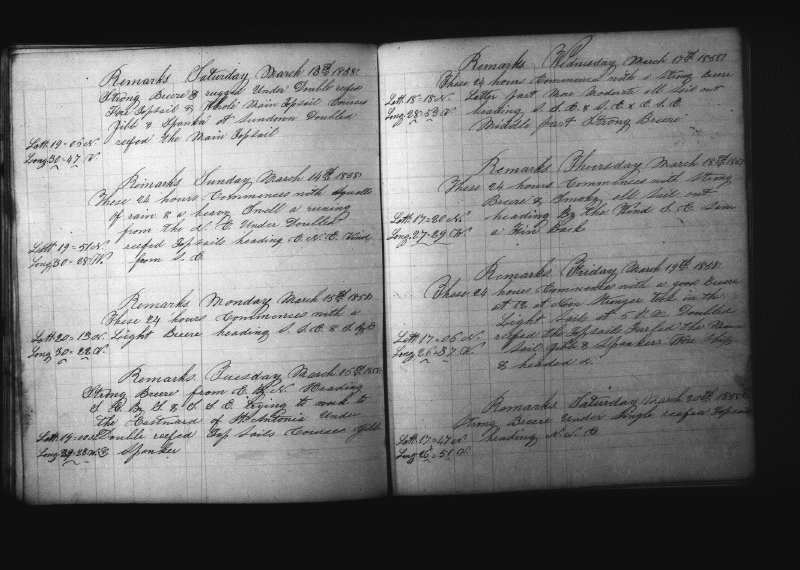 Remarks Saturday March 13th 1858
Strong Breeze & rugged Under Double reefed
Fore Topsail & Whole Main Topsail Courses
Jibb & Spanker at Sundown Doubled
Latt 19=05 N reefed the Main Topsail
Long 30=47 W
Remarks Sunday March 14th 1858
These 24 hours Commences with Squalls
of rain & a heavy Swell a running
from the N. E. Under Doubled
Latt 19=51 N reefed Topsails heading E. N. E. Wind
Long 30=28 W from S. E.
Remarks Monday March 15th 1858
These 24 hours Commences with a
Latt 20=13 N Light Breeze heading S. S. E & S. by E
Long 30=22 W
Remarks Tuesday March 16th 1858
Strong Breeze from E. by N. Heading
S. E. By S & S. S. E. trying to work to
the Eastward of St Antonia Under
Latt 19=00 N Double reefed Top Sails Courses Jibb
Long 29=28 W & Spanker
Remarks Wednesday March 17th 1858
These 24 hours Commences with a Strong Breeze
Latt 18=18 N Latter part More Moderate all Sail out
Long 28=53 W heading S. S. E & S. E. & E. S. E.
Middle part Strong Breeze
Remarks Thursday March 18th 1858
These 24 hours Commences with Strong
Breeze & Smoky all Sail out
Latt 17=20 N heading By the Wind S. E. Saw
Long 27=29 W a Finn Back
Remarks Friday March 19th 1858
These 24 hours Commences with a good Breeze
at N. E. Stronger took in the
Light Sails at 5 P.M. Doubled
Latt 17=06 N reefed the Topsails Furled the Main
Long 26=37 W Sail Jibb & Spanker Wore Ship
& headed
Remarks Saturday March 20th 1858
Strong Breeze Under Single reefed Topsails
Latt 17=47 N heading N. N. E
Long 26=51 W